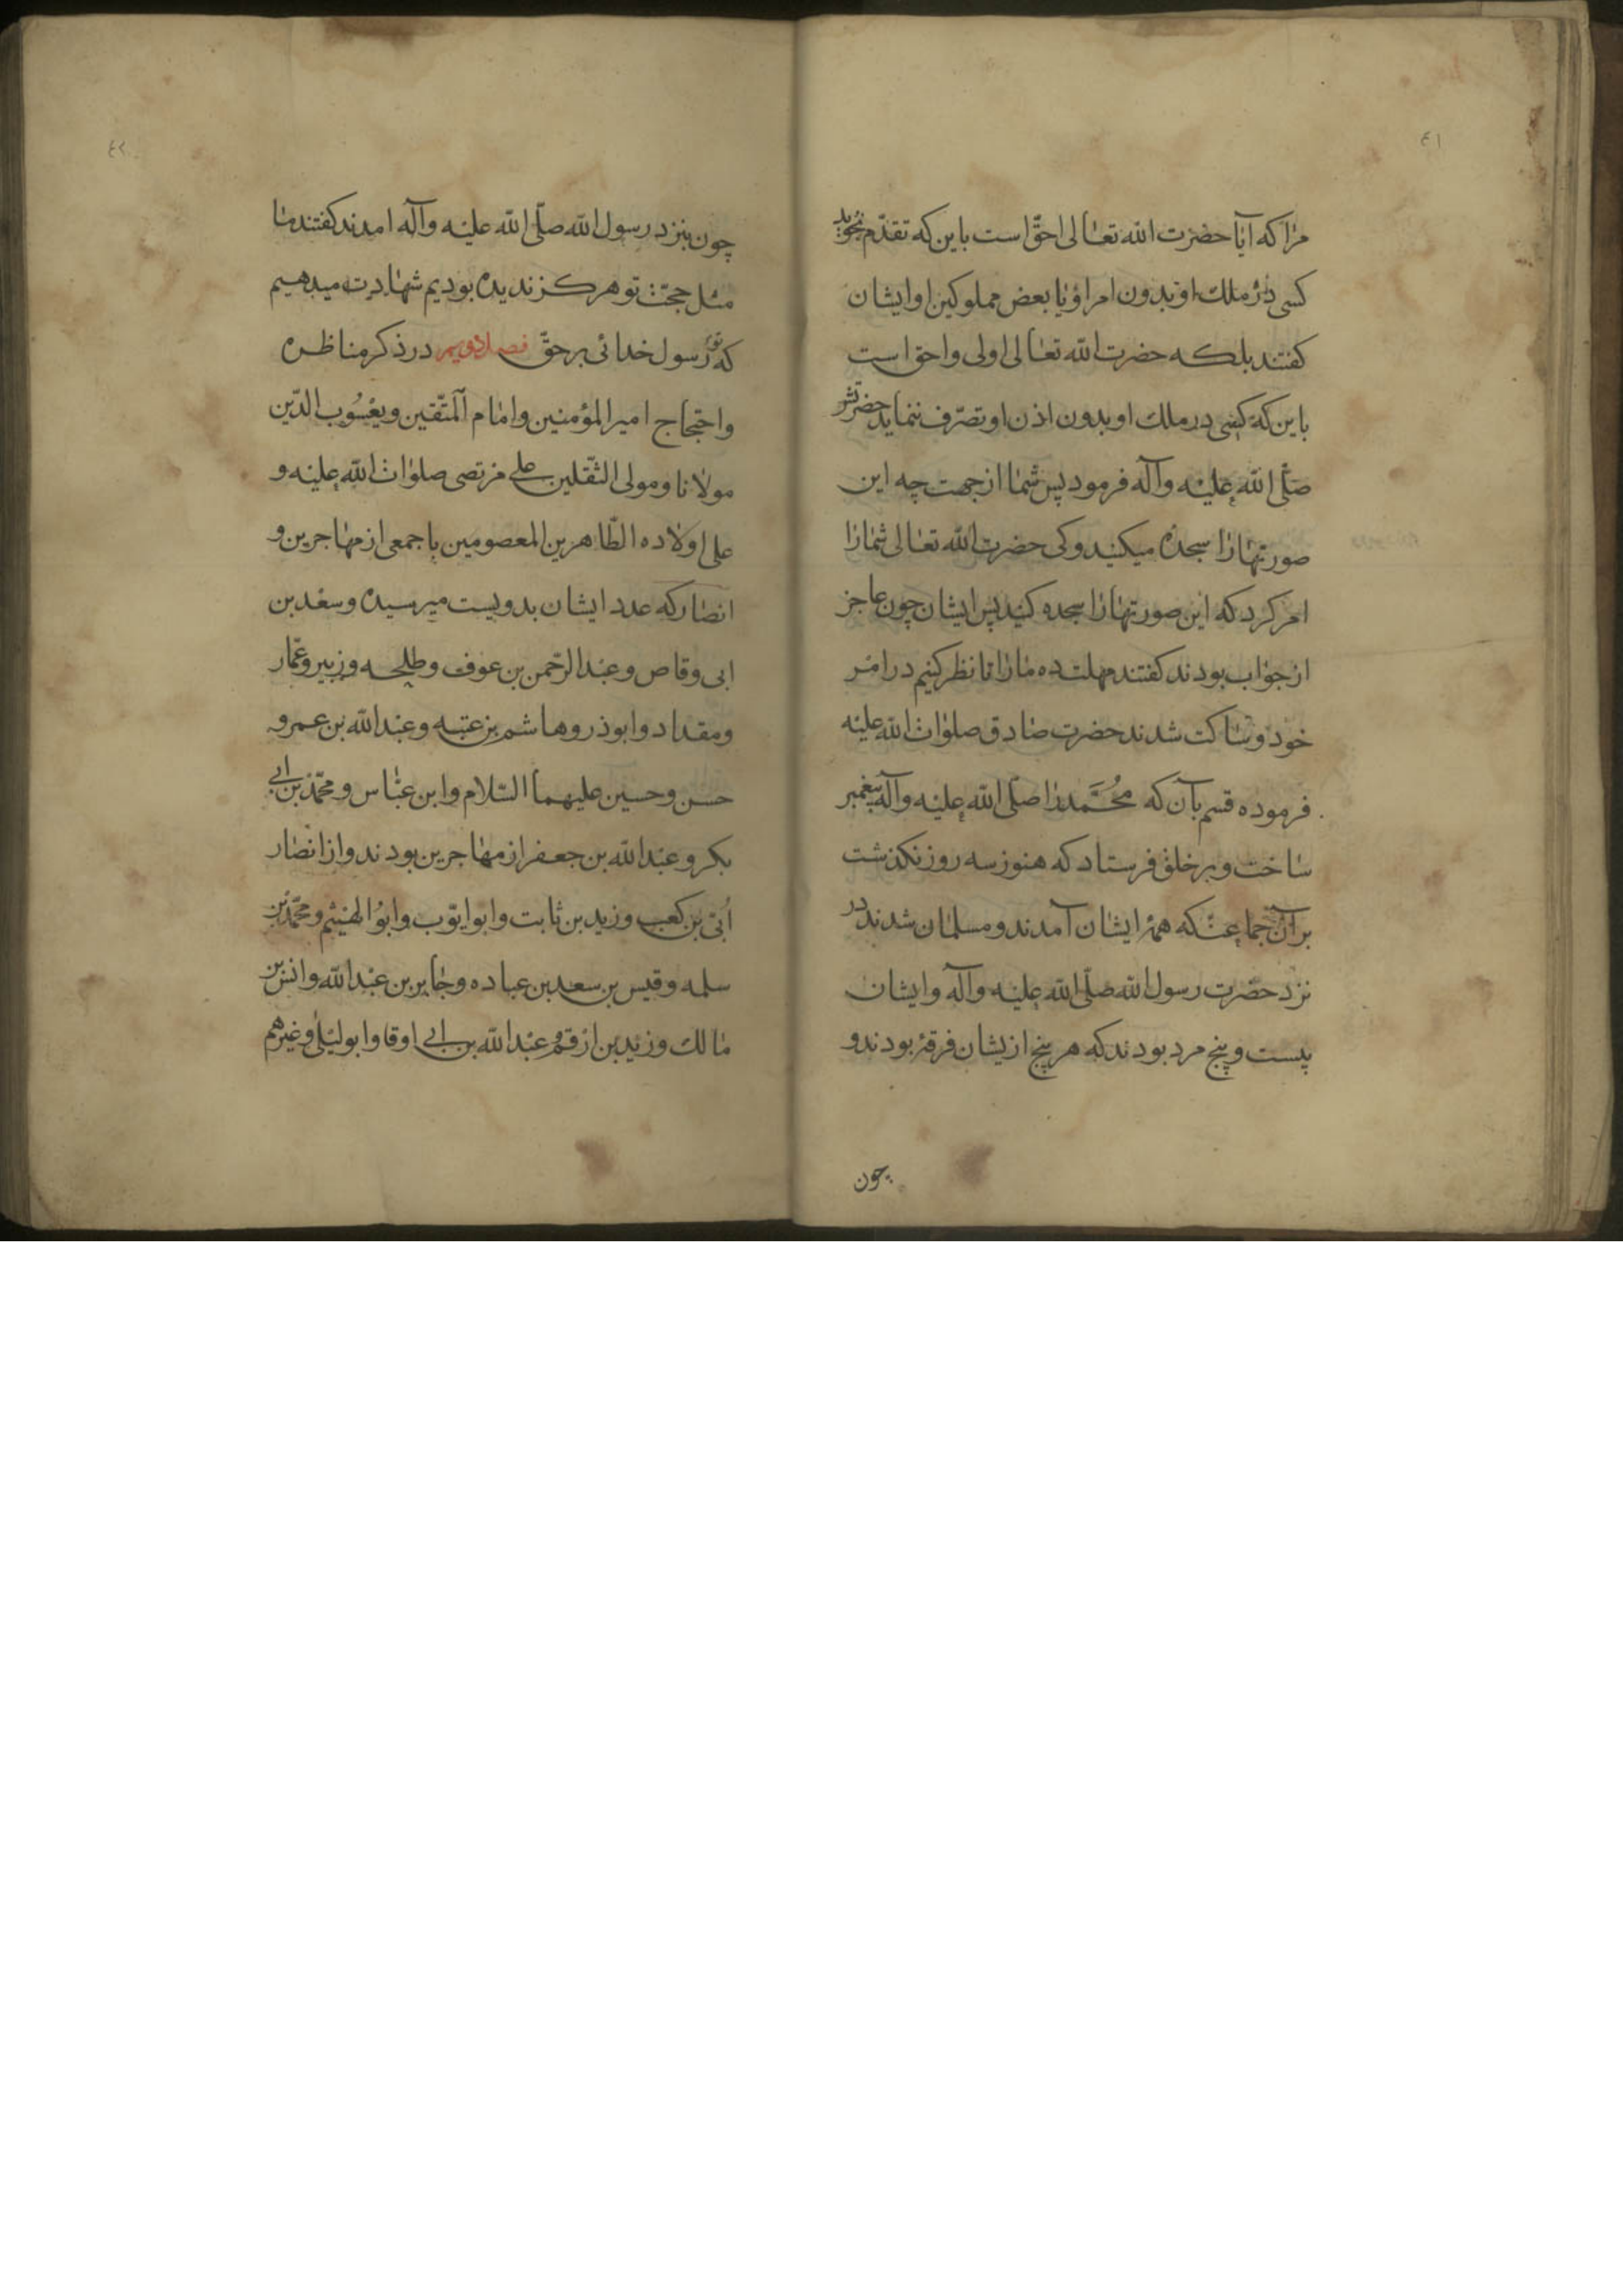 ٤١
مرا که آیا حضرت الله تعالی احقّ است باین که تقدّم نجوید
کسی در ملک او بدون امر او یا بعض مملوکین او ایشان
کفتند بلکه حضرت الله تعالی اولی و احق است
باین که کسی در ملک او بدون اذن او تصرّف ننماید حضرتش
صلّی الله علیه وآله فرمود پس شما از جهت چه این
صورتها را سجده میکنید و کی حضرت الله تعالی شما را
امر کرد که این صورتها را سجده کنید پس ایشان چون عاجز
از جواب بودند کفتند مهلت ده ما را تا نظر کنیم در امر
خود و ساکت شدند حضرت صادق صلوات الله علیه
فرموده قسم بآن که محمّد را صلّی الله علیه وآله پیغمبر
ساخت و بر خلق فرستاد که هنوز سه روز نکذشت
بر آن جماعت که همهٔ ایشان آمدند و مسلمان شدند در
نزد حضرت رسول الله صلّی الله علیه وآله و ایشان
بیست و پنج مرد بودند که هر پنج از یشان فرقهٔ بودند و
چون
٤٢
چون بنزد رسول الله صلّی الله علیه وآله امدند کفتند ما
مثل حجّت تو هرکز ندیده بودیم شهادت میدهیم
که تو رسول خدائی بر حقّ فصل دویم در ذکر مناظره
و احتجاج امیر المؤمنین و امام المتّقین و یعسوب الدّین
مولانا و مولی الثّقلین علی مرتضی صلوات الله علیه و
علی اولاده الطّاهرین المعصومین با جمعی از مهاجرین و
انصار که عدد ایشان بدویست میرسیده و سعد بن
ابی وقاص و عبد الرّحمن بن عوف و طلحه و زبیر و عمّار
و مقداد و ابوذر و هاشم بن عتبه و عبد الله بن عمر و
حسن و حسین علیهما السّلام و ابن عبّاس و محمّد بن ابی
بکر و عبد الله بن جعفر از مهاجرین بودند و از انصار
اُبّی بن کعب و زید بن ثابت و ابو ایّوب و ابو الهیثم و محمّد بن
سلمه و قیس بن سعد بن عباده و جابر بن عبد الله و انس بن
مالک و زید بن ارقم و عبد الله بن ابی اوفا و ابو لیلی و غیرهم